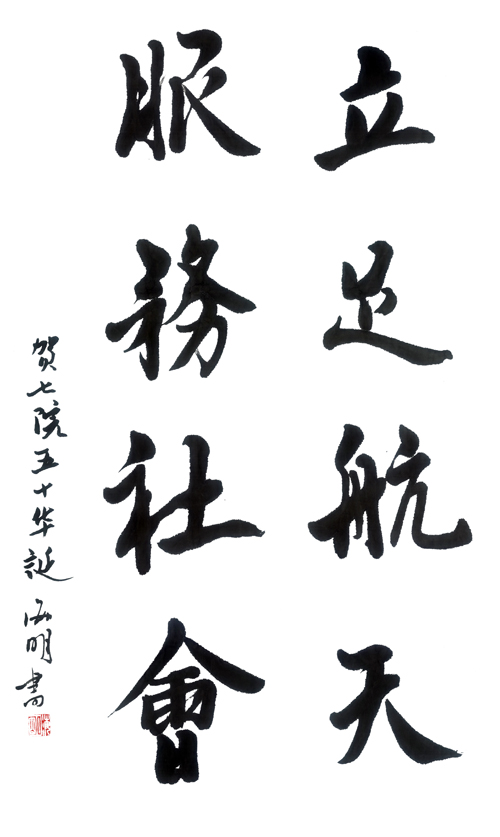 立足航天
服務社會
贺七院五十华誕
海明書